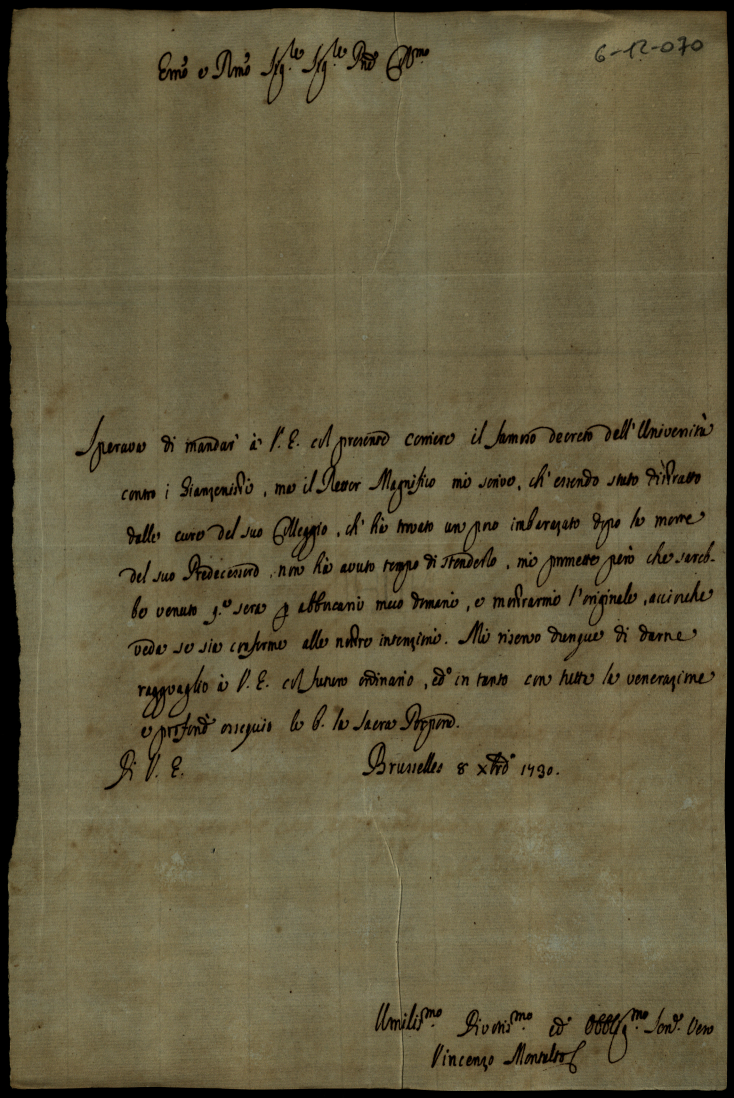 6-12-070
Emo e Rmo Sigre Sigre Pne Colmo
Sperava di mandar' à V. E. col presente corriere il famoso decreto dell'Università
contro i Gianzenisti, ma il Rettor Magnifico mi scrive, ch' essendo stato distratto
dalle cure del suo Colleggio, ch' hà trovato un poco imbarazato dopo la morte
del suo Predecessore, non hà avuto tempo di stenderlo, mi promette però che sareb-
be venuto qta sera p abboccarsi meco domani, e mostrarmi l'originale, accioche
veda se sia conforme alle nostre intenzioni. Mi riservo dunque di darne
ragguaglio à V. E. col futuro ordinario, ed in tanto con tutta la venerazione
e profondo ossequio le b. la Sacra Porpora.
Di V. E. Brusselles 8 Xbre 1730.
Umilismo Divotismo ed Obbligmo Serv. Vero
Vincenzo Montalto